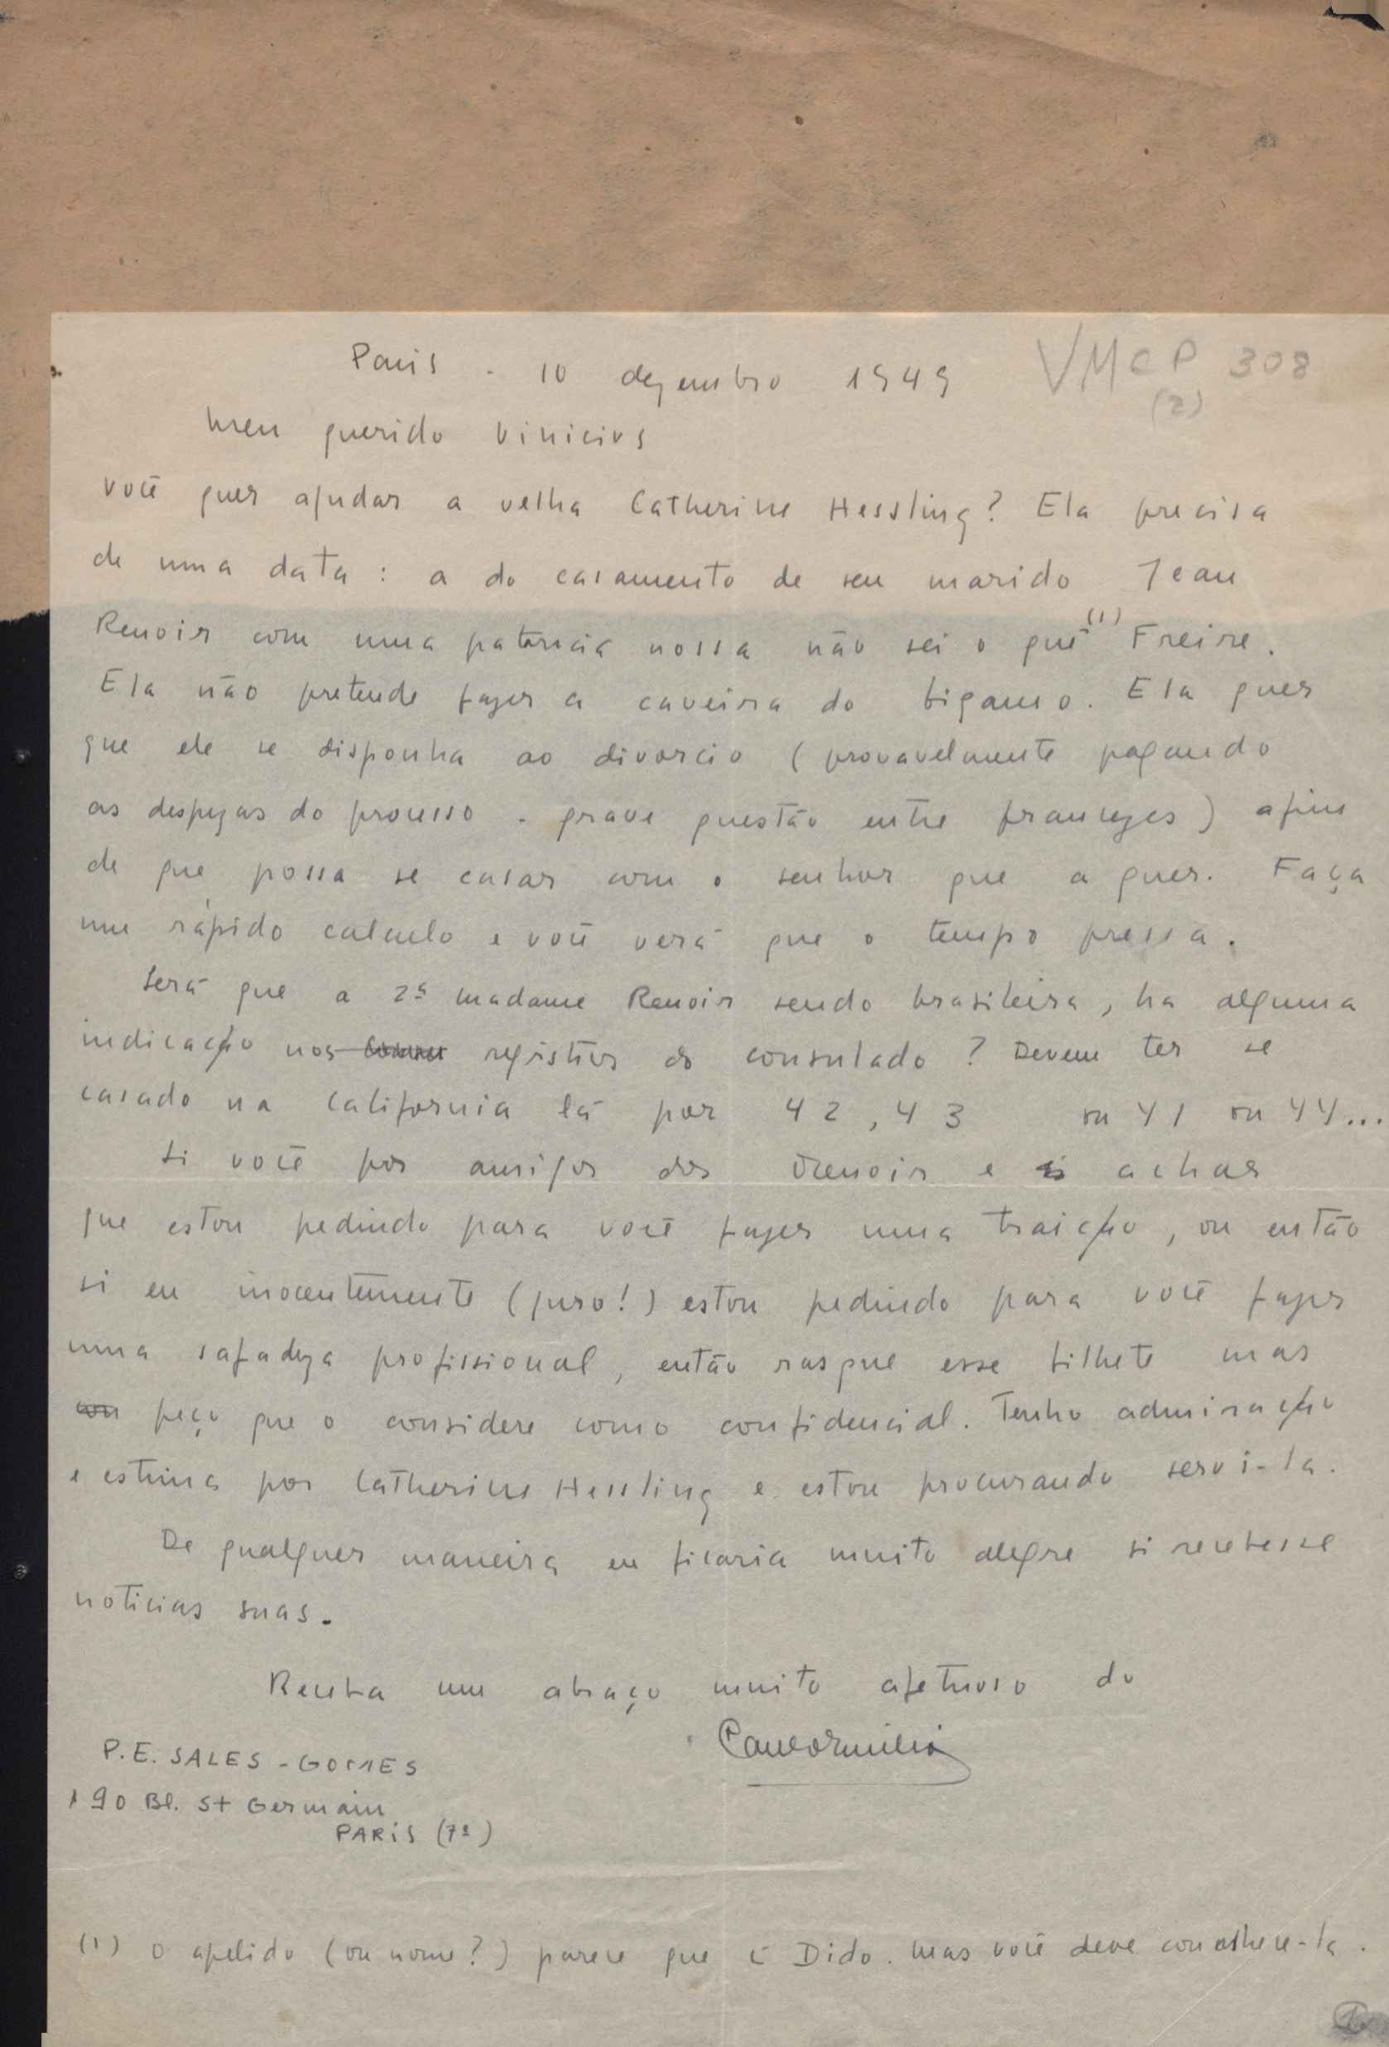 Paris - 10 dezembro 1949
VMCP 308
(2)
Meu querido Vinicius
você quer ajudar a velha Catherine Hessling? Ela precisa
de uma data: a do casamento de seu marido Jean
Renoir com uma patricia nossa não sei o quê (1) Freire.
Ela não pretende fazer a caveira do bigamo. Ela quer
que ele se disponha ao divorcio (provavelmente pagando
as despezas do processo - grave questão entre francezes) afim
de que possa se casar com o senhor que a quer. Faça
um rápido calculo e você verá que o tempo pressa.
Será que a 2ª madame Renoir sendo brasileira, ha alguma
indicação nos registros do consulado? Devem ter se
casado na California lá por 42, 43 ou 41 ou 44...
Si você for amigo dos Renoir e achar
que estou pedindo para você fazer uma traição, ou então
si eu inocentemente (juro!) estou pedindo para você fazer
uma safadeza profissional, então rasgue esse bilhete mas
peço que o considere como confidencial. Tenho admiração
e estima por Catherine Hessling e estou procurando servi-la.
De qualquer maneira eu ficaria muito alegre si recebesse
noticias suas.
Receba um abraço muito afetuoso do
Paulo Emilio
P.E. SALES-GOMES
190 Bl. St Germain
PARIS (7e)
(1) O apelido (ou nome?) parece que é Dido. Mas você deve conhece-la.